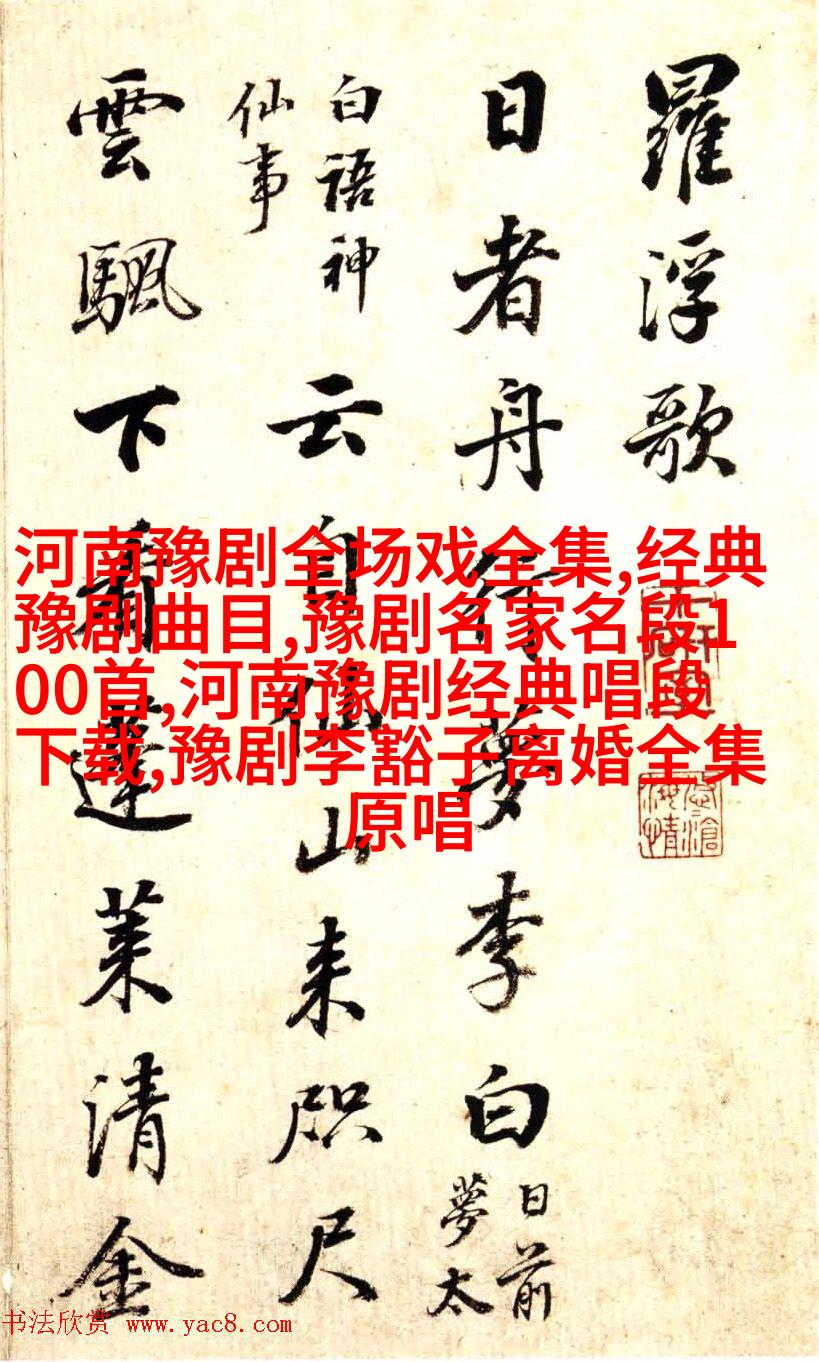 羅浮歌
日者舟行夢李白
日前
夢太
白語神
仙事
云自仙山来咫尺
雲颿下看蓬莱清金
河南豫剧全场戏全集,经典
豫剧曲目,豫剧名家名段1
00首,河南豫剧经典唱段
下载,豫剧李豁子离婚全集
原唱
书法欣赏 www.yac8.com